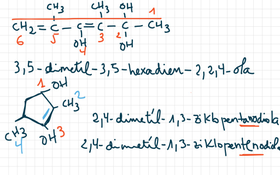 CH₃ CH₃ OH 1
CH₂=C-C=C-C-CH₃
6 5 OH 4 3 2 OH
3,5-dimetil-3,5-hexadien-2,2,4-ola
1 OH
CH₃ 2
2,4-dimetil-1,3-ziklopentanodiola
CH₃ 4 OH 3
2,4-dimetil-1,3-ziklopentenodiola